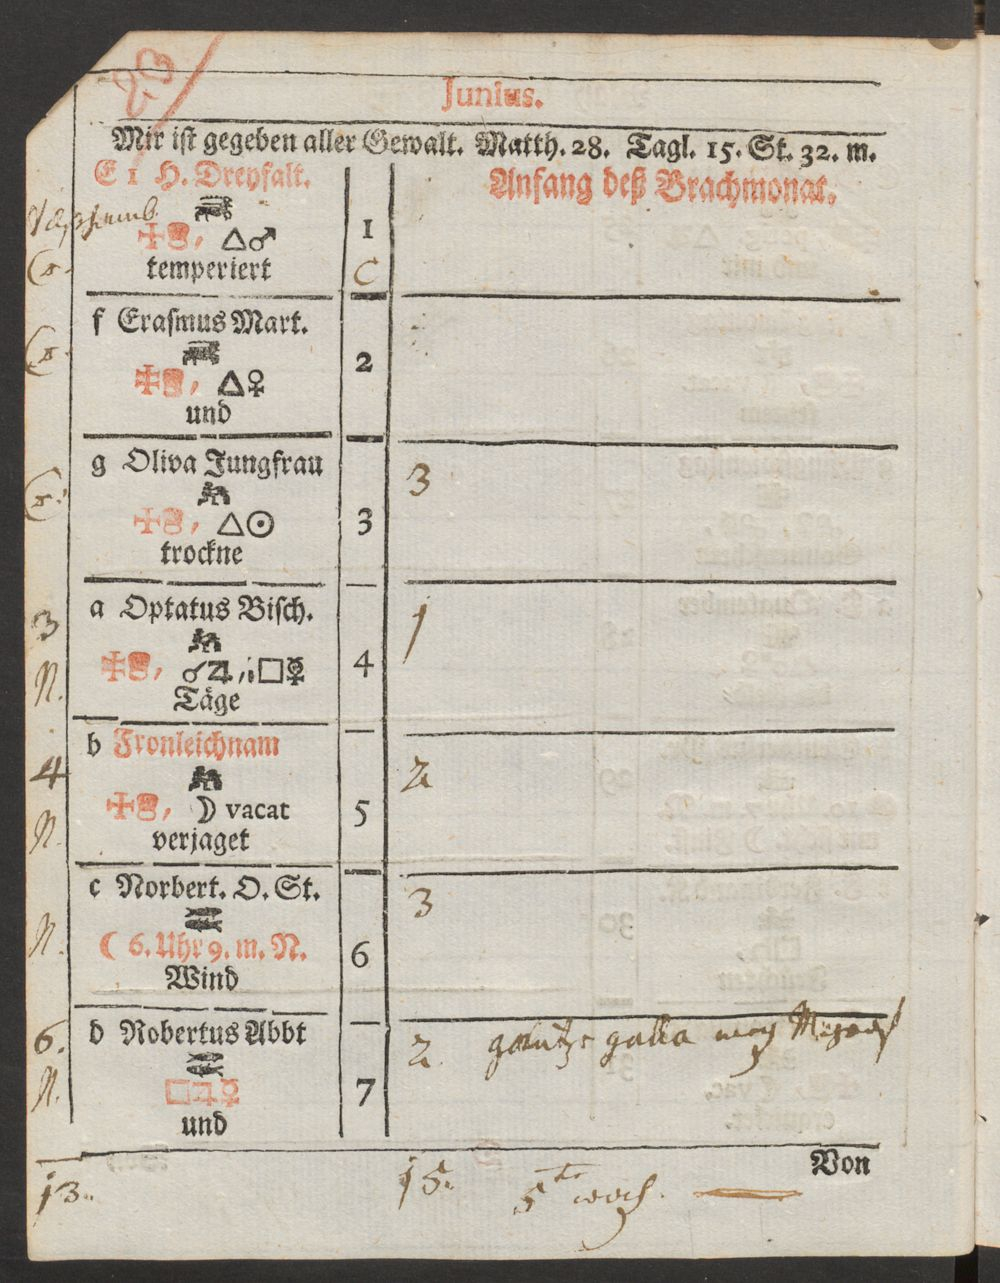 23
Junius.
Mir ist gegeben aller Gewalt. Matth. 28. Tagl. 15. St. 32. m.
E 1 H. Dreyfalt.
Anfang deß Brachmonat.
△♂
1
temperiert
C
f Erasmus Mart.
△♀
2
und
g Oliva Jungfrau
3
△☉
3
trockne
a Optatus Bisch.
1
3
☌♃, □☿
4
N.
Täge
b Fronleichnam
2
4
☽ vacat
5
N.
verjaget
c Norbert. O. St.
3
N.
☾ 6. Uhr 9. m. N.
6
Wind
6.
d Robertus Abbt
2. gantze galla nach
N.
□♃☿
7
und
Von
13.
15.
5te woch.